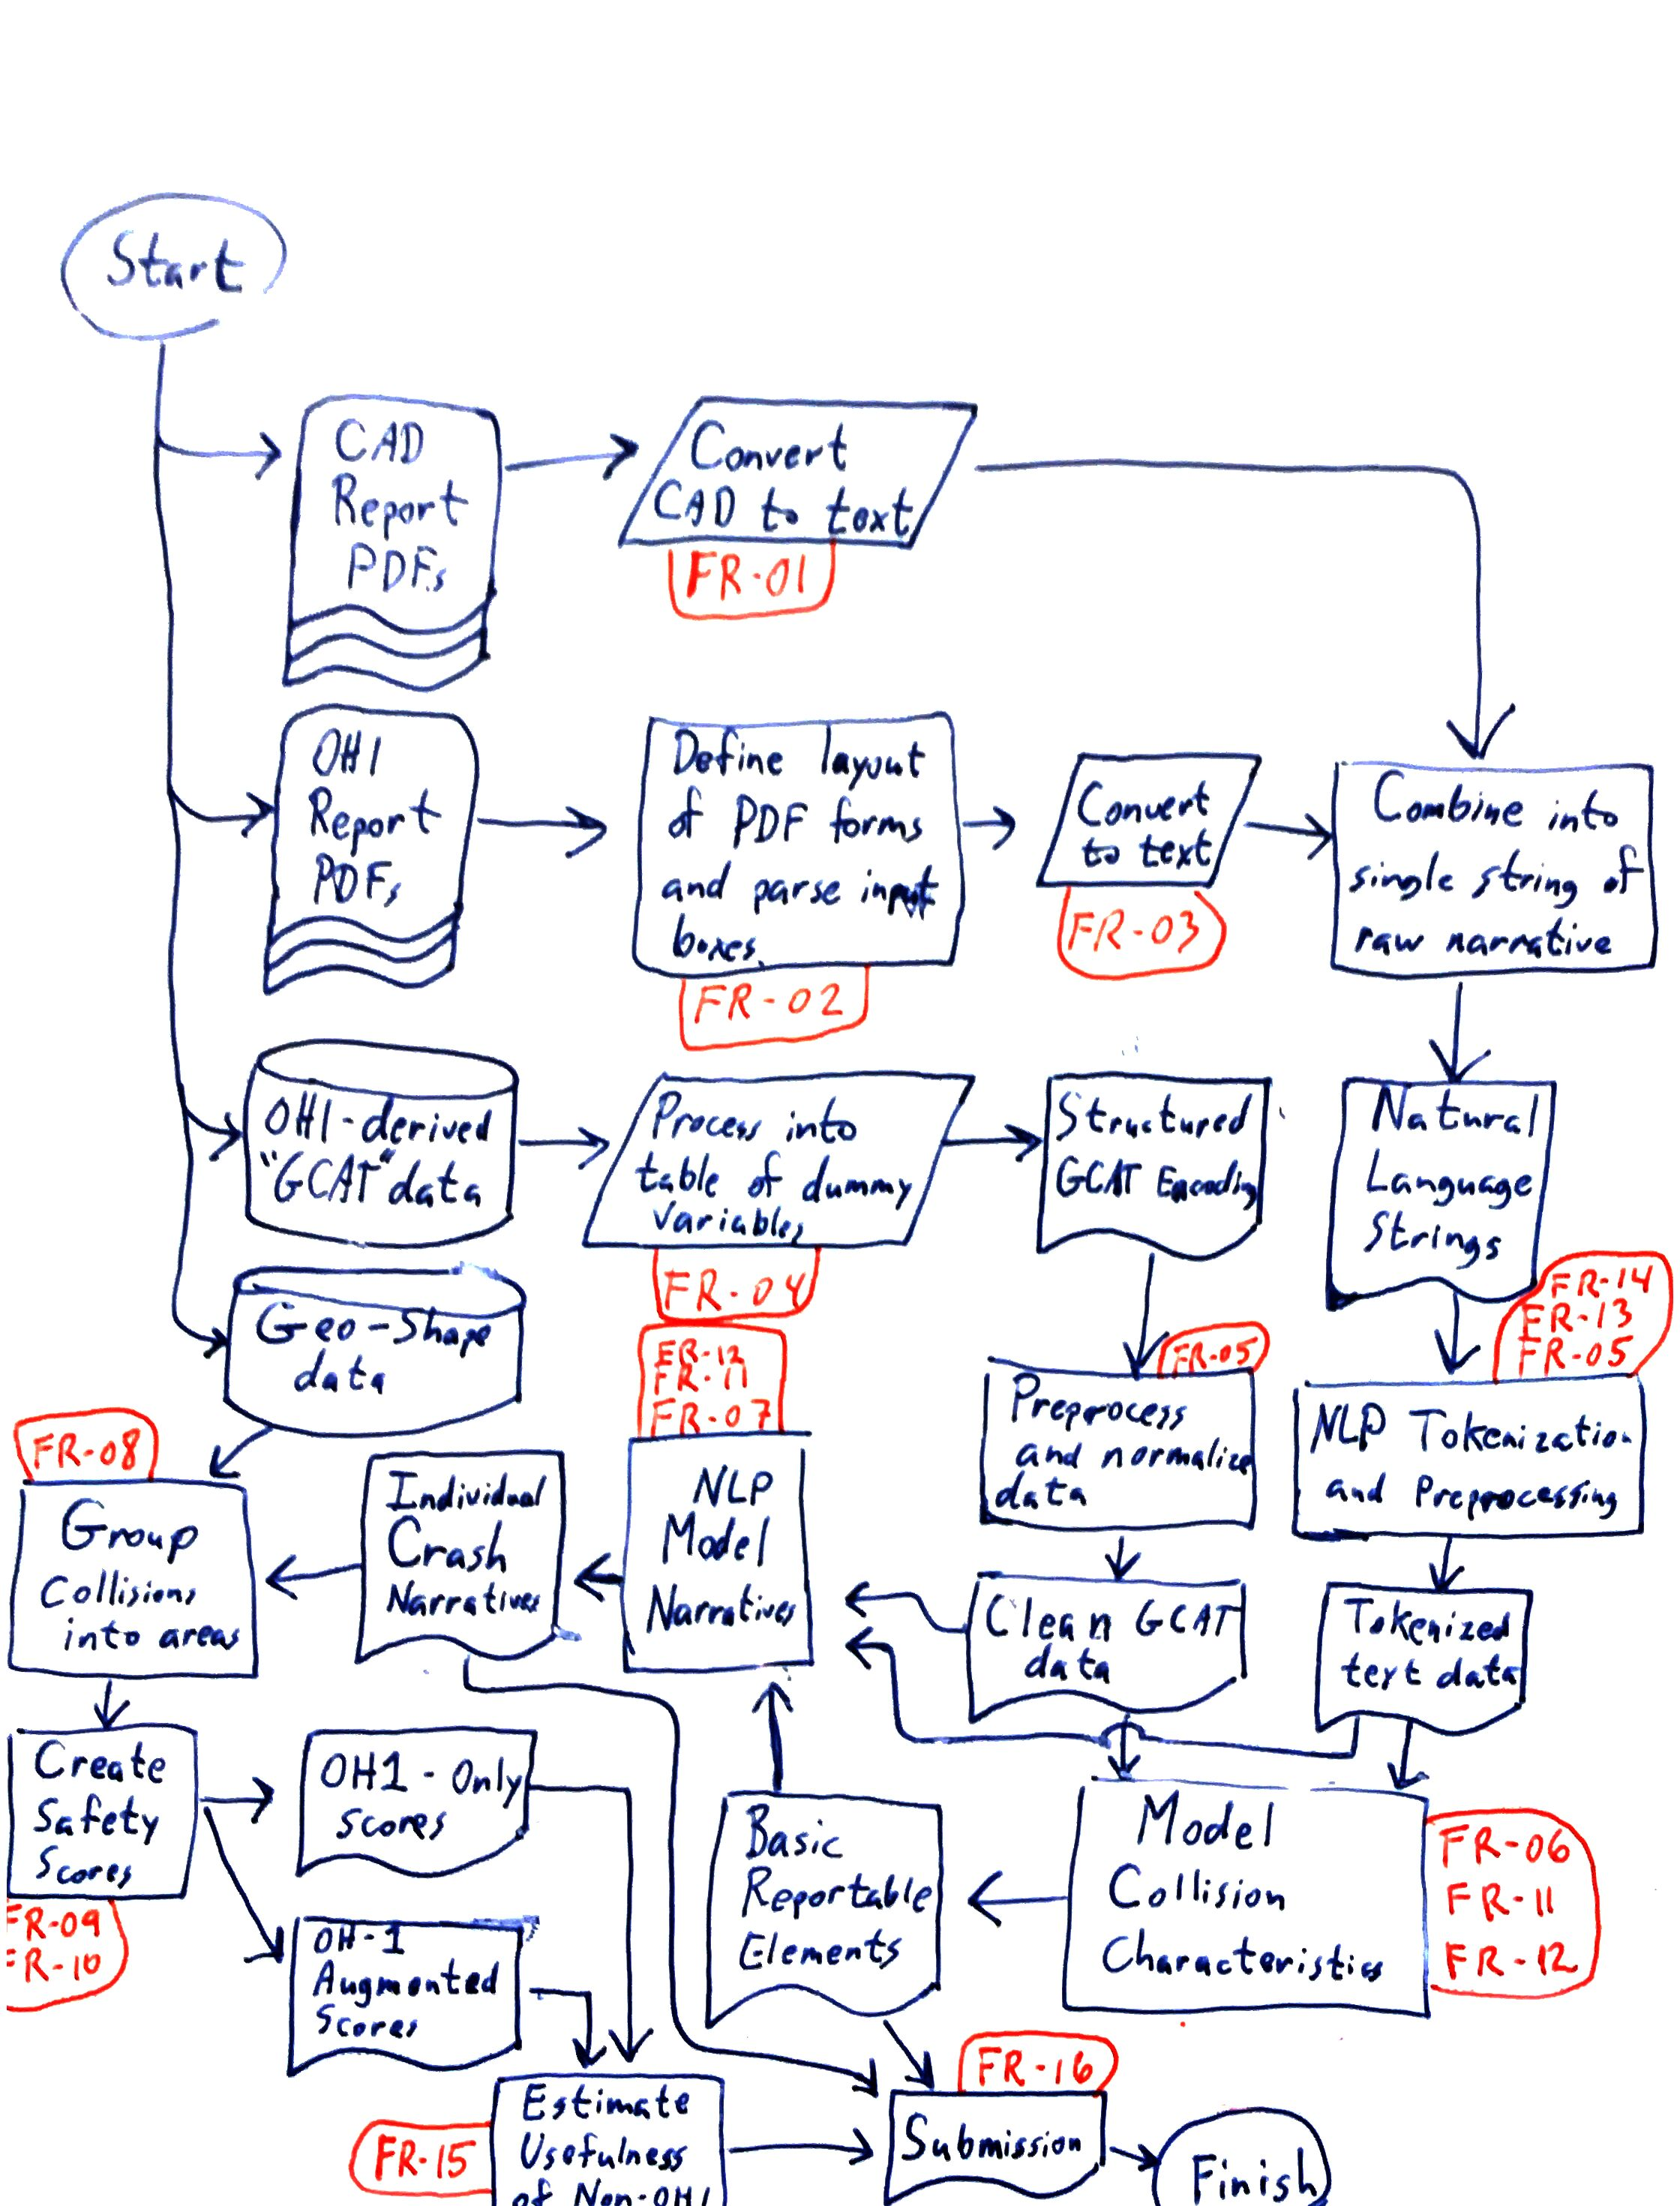 Start
CAD
Report
PDFs
Convert
CAD to text
FR-01
OH1
Report
PDFs
Define layout
of PDF forms
and parse input
boxes.
FR-02
Convert
to text
FR-03
Combine into
single string of
raw narrative
OH1-derived
"GCAT" data
Process into
table of dummy
variables
FR-04
Structured
GCAT Encoding
Natural
Language
Strings
FR-14
FR-13
FR-05
Geo-Shape
data
FR-12
FR-11
FR-07
FR-05
Preprocess
and normalize
data
NLP Tokenization
and Preprocessing
FR-08
Group
Collisions
into areas
Individual
Crash
Narratives
NLP
Model
Narratives
Clean GCAT
data
Tokenized
text data
Create
Safety
Scores
FR-09
FR-10
OH1-Only
scores
OH-1
Augmented
Scores
Basic
Reportable
Elements
Model
Collision
Characteristics
FR-06
FR-11
FR-12
FR-15
Estimate
Usefulness
of Non-OH1
FR-16
Submission
Finish